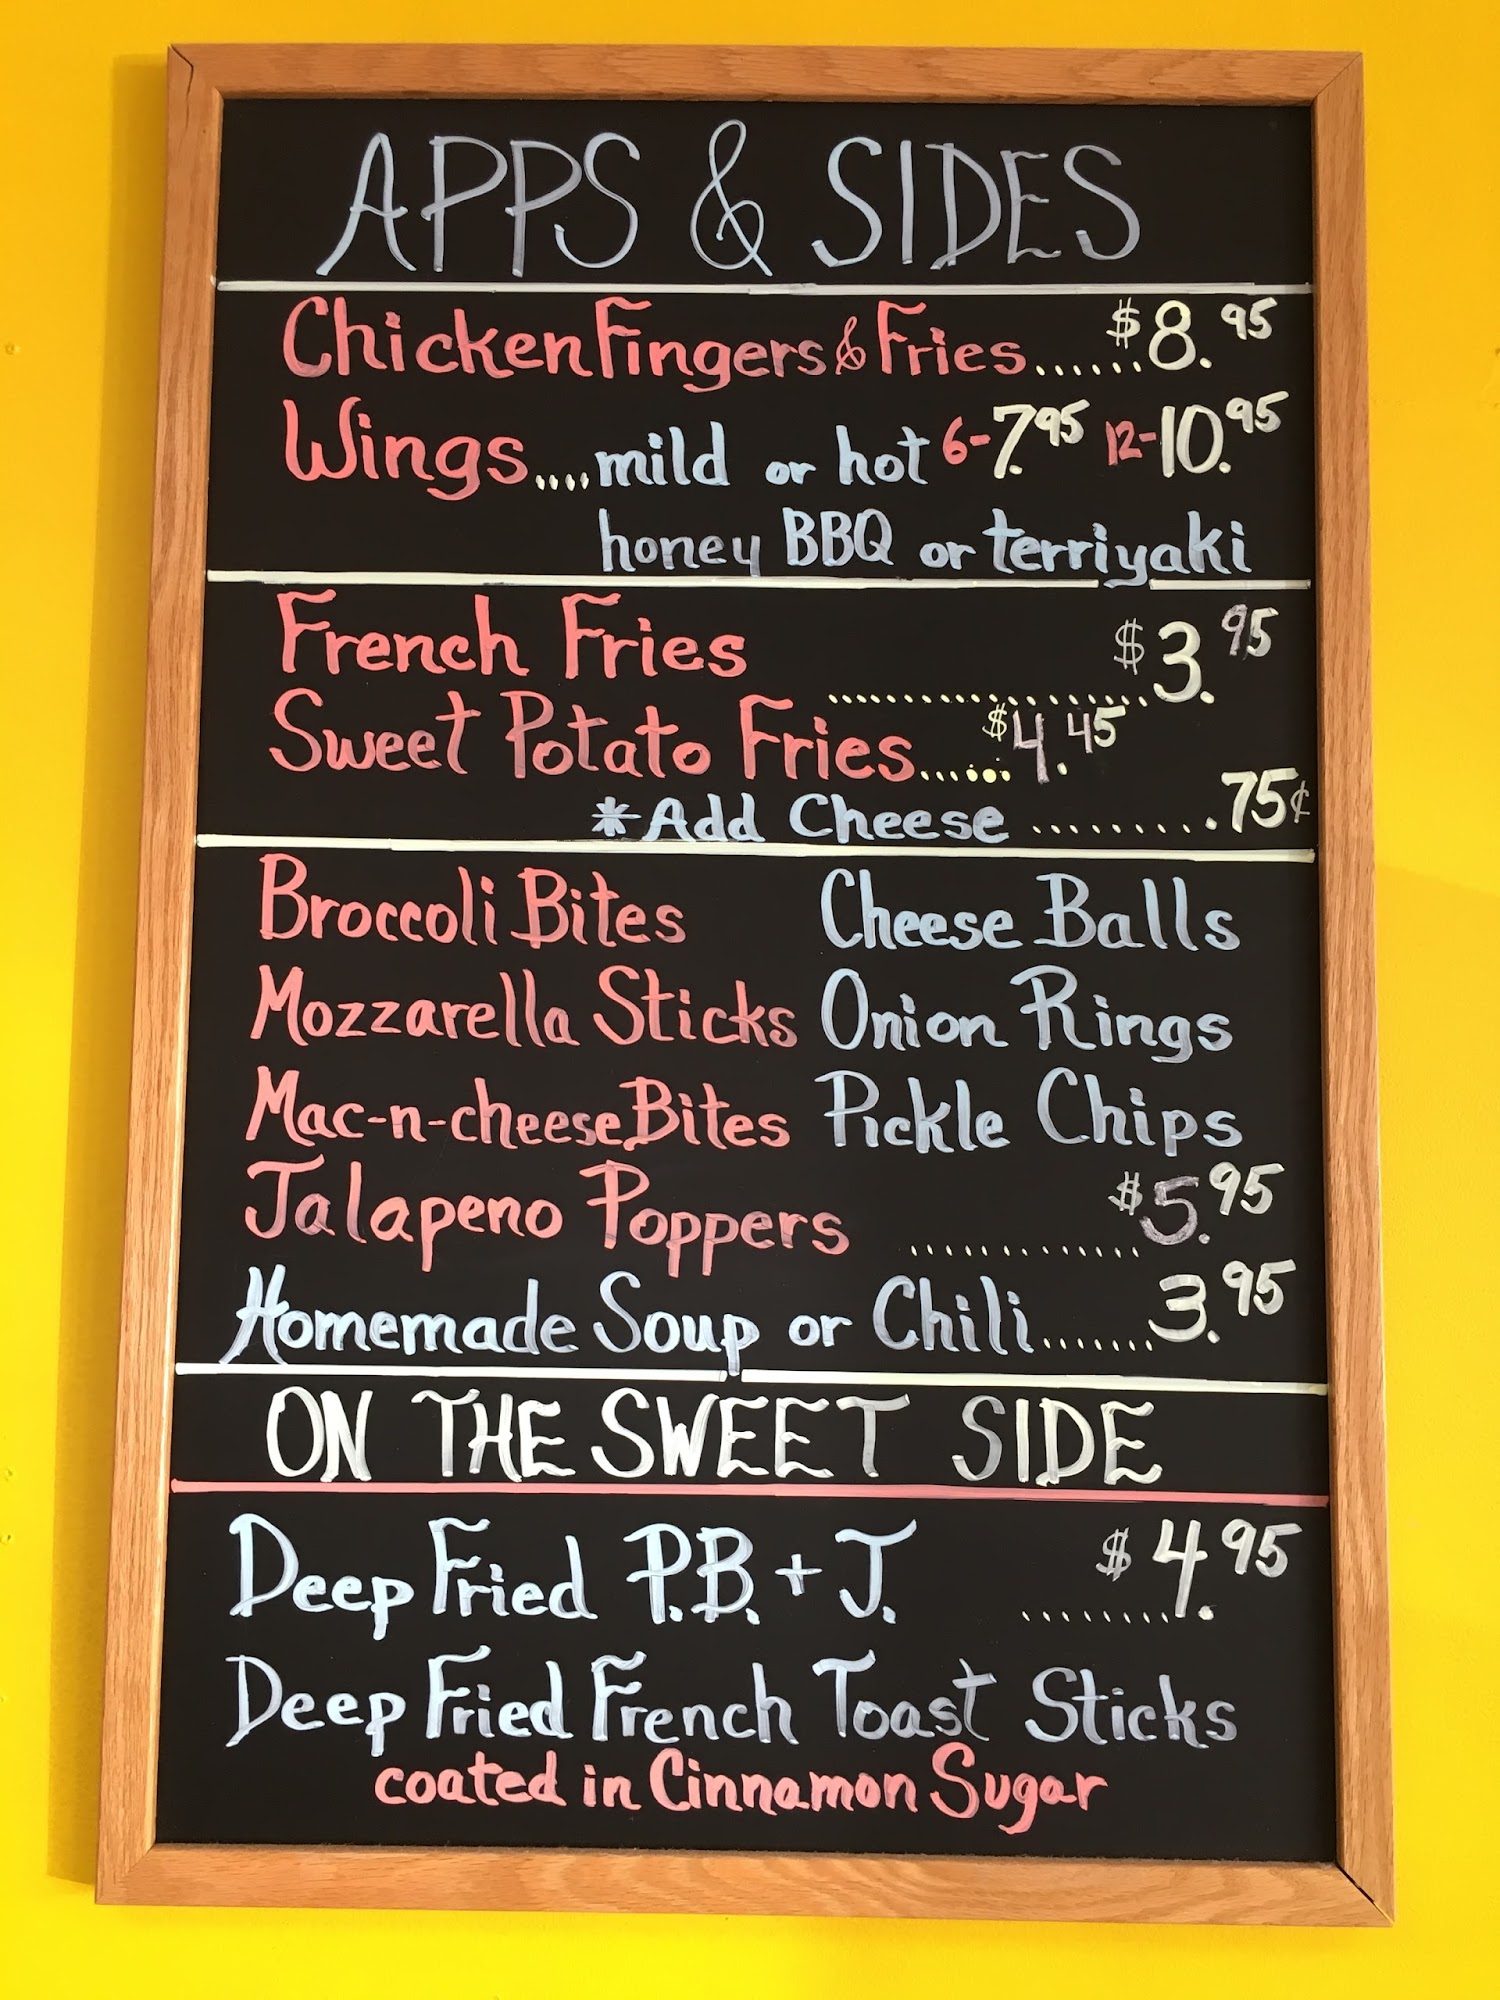 APPS & SIDES
Chicken Fingers & Fries......$8.95
Wings....mild or hot 6-7.95 12-10.95
honey BBQ or terriyaki
French Fries ....................$3.95
Sweet Potato Fries......$4.45
*Add Cheese ..........75¢
Broccoli Bites Cheese Balls
Mozzarella Sticks Onion Rings
Mac-n-cheese Bites Pickle Chips
Jalapeno Poppers .............$5.95
Homemade Soup or Chili.......3.95
ON THE SWEET SIDE
Deep Fried P.B. + J. .........$4.95
Deep Fried French Toast Sticks
coated in Cinnamon Sugar